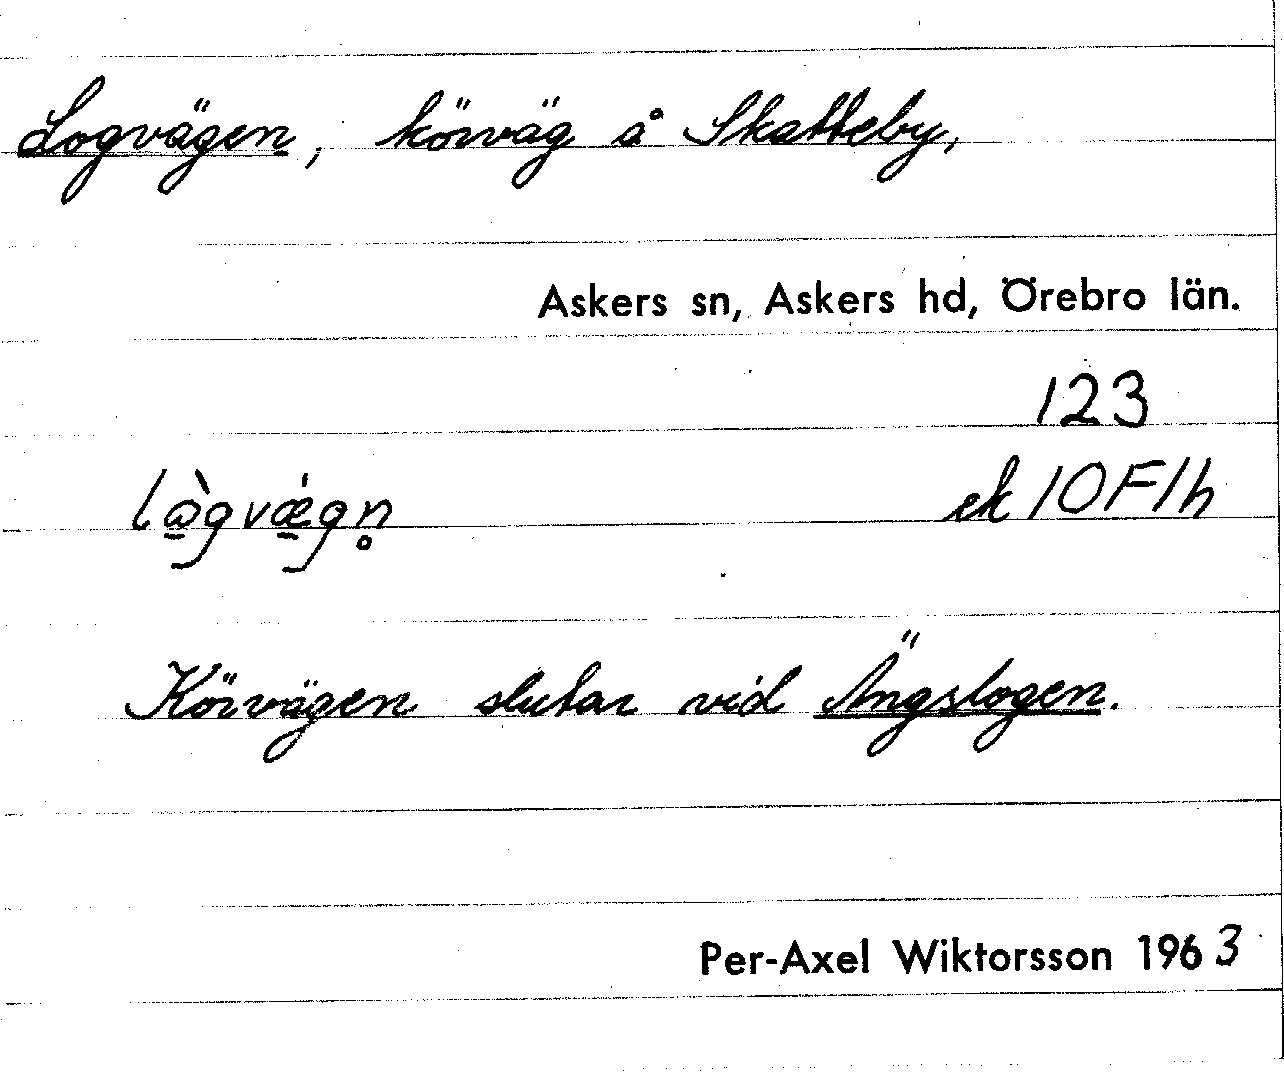 Logvägen, körväg å Skatteby,
Askers sn, Askers hd, Örebro län.
123
ek 10F1h
Körvägen slutar vid Ängslogen.
Per-Axel Wiktorsson 1963